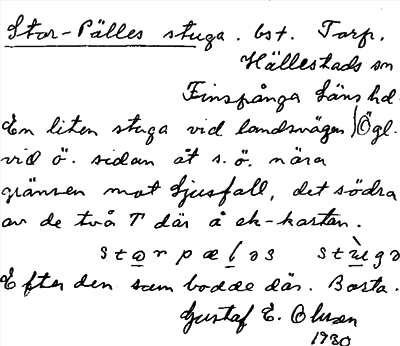 Stor-Pålles stuga. bst. Torp.
Hällestads sn
Finspånga läns hd.
En liten stuga vid landsvägen Ögl.
vid ö. sidan åt s. ö. nära
gränsen mot Ljusfall, det södra
av de två T där å ek-kartan.
storpæləs stùgə
Efter den som bodde där. Borta.
Gustaf E. Olsson
1930